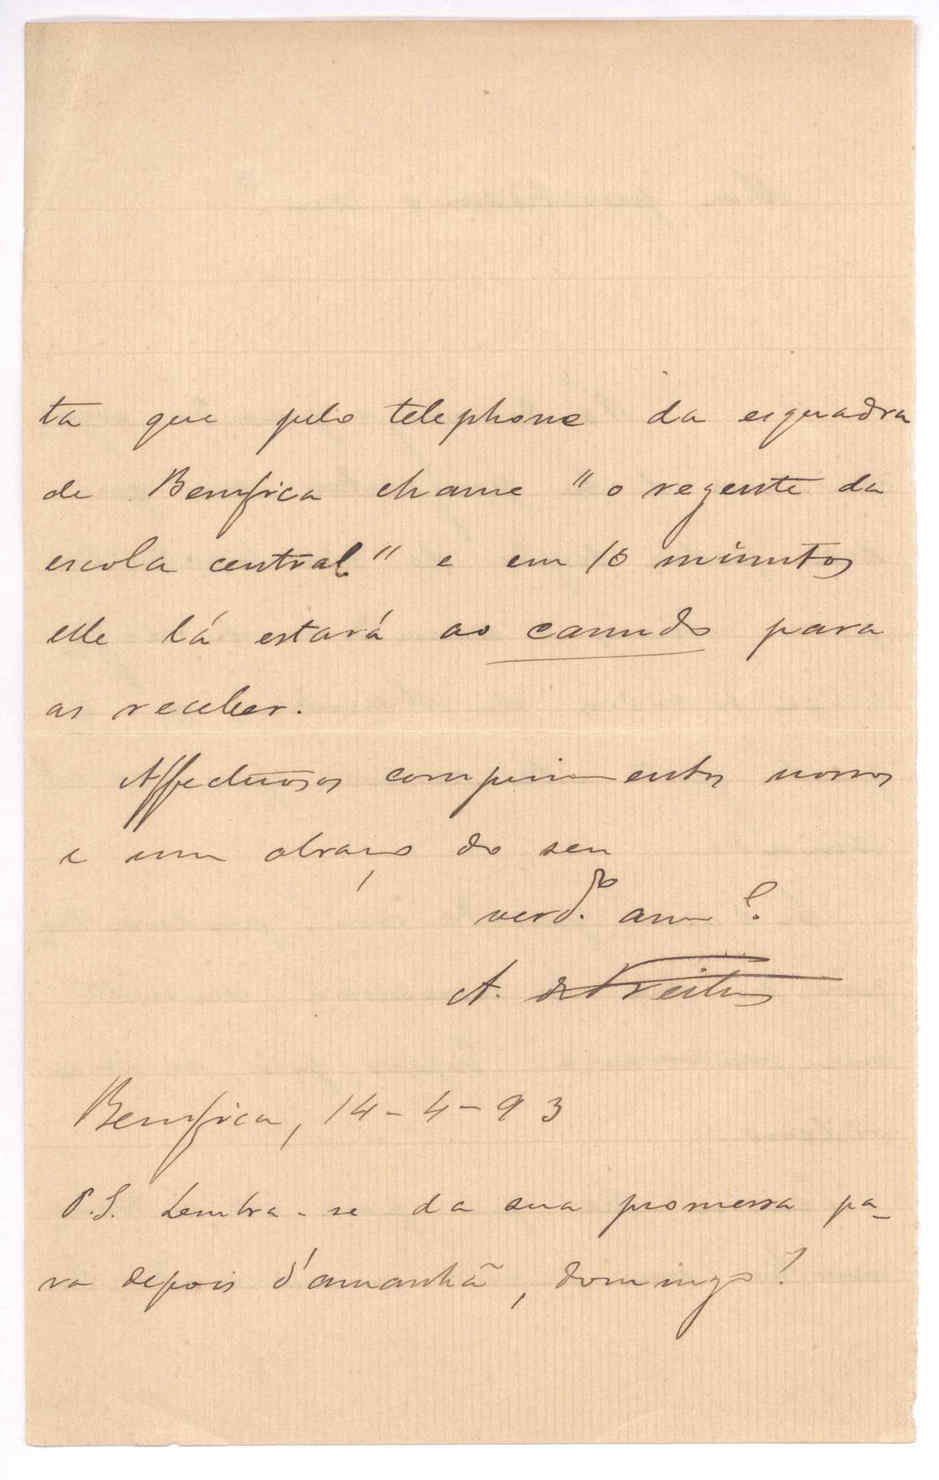 ta que pelo telephone da esquadra
de Bemfica chame "o regente da
escola central" e em 10 minutos
elle lá estará ao canudo para
as receber.
Affectuosos comprimentos nossos
e um abraço do seu
verd.º am.º
A. de Freitas
Bemfica, 14-4-93
P.S. Lembra-se da sua promessa pa-
ra depois d'amanhã, domingo?